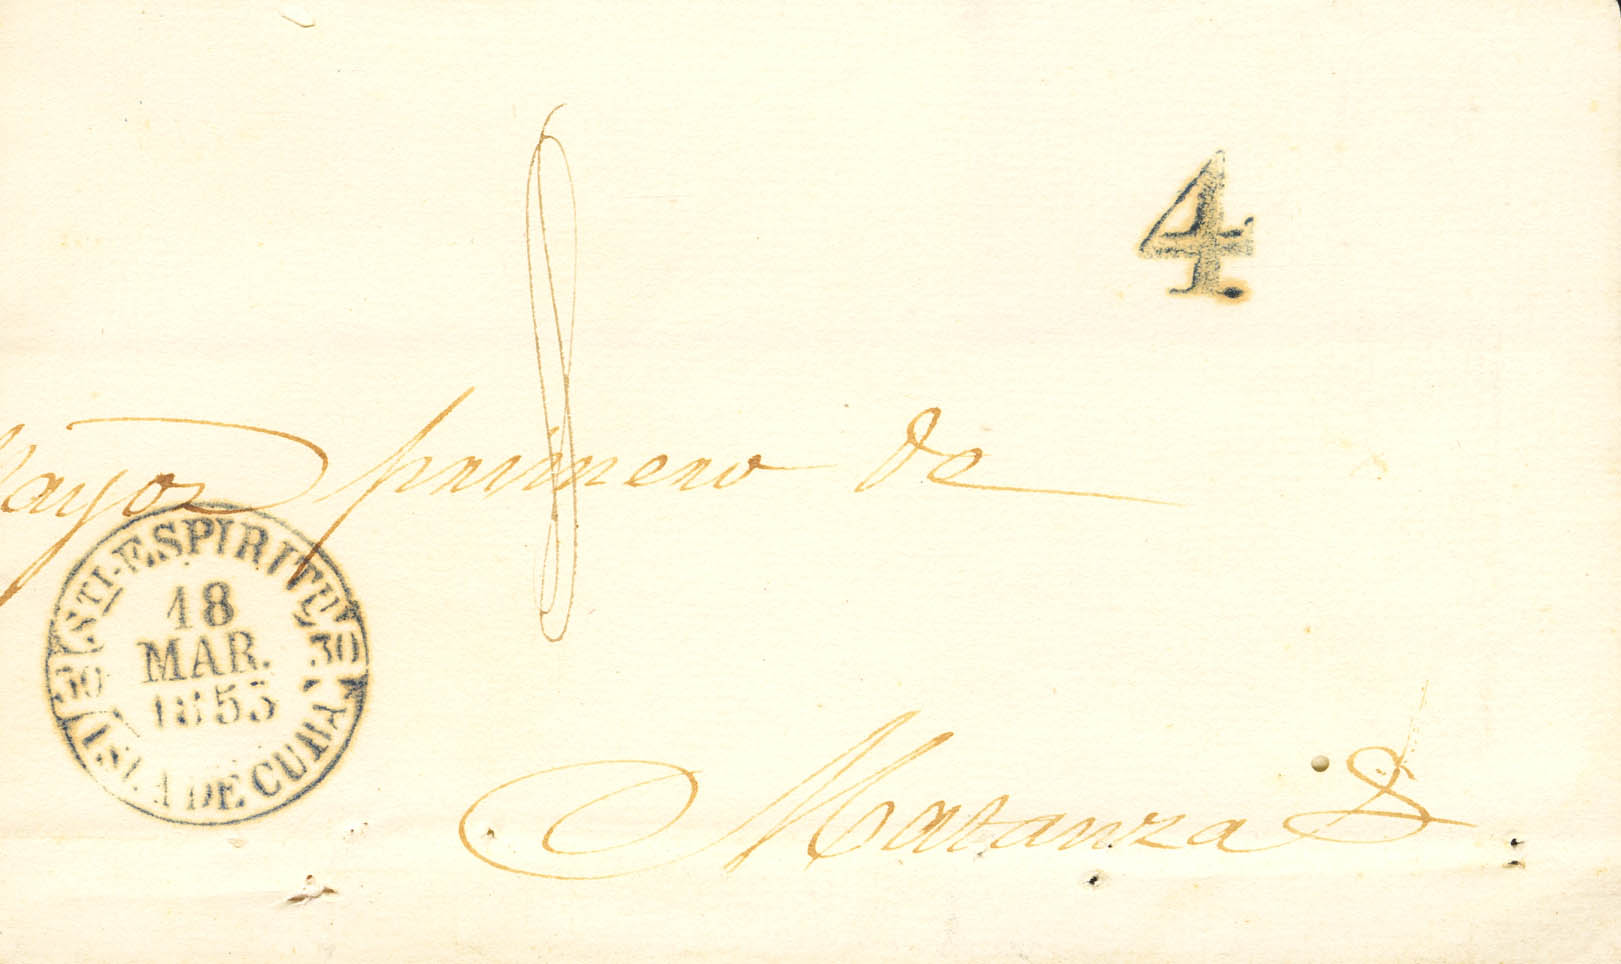 4.
primero de
STI-ESPIRITU
18
MAR.
1853
30 30
ISLA DE CUBA
Matanzas